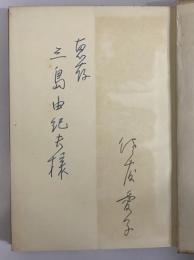 愛子
恵存
三島由紀夫様